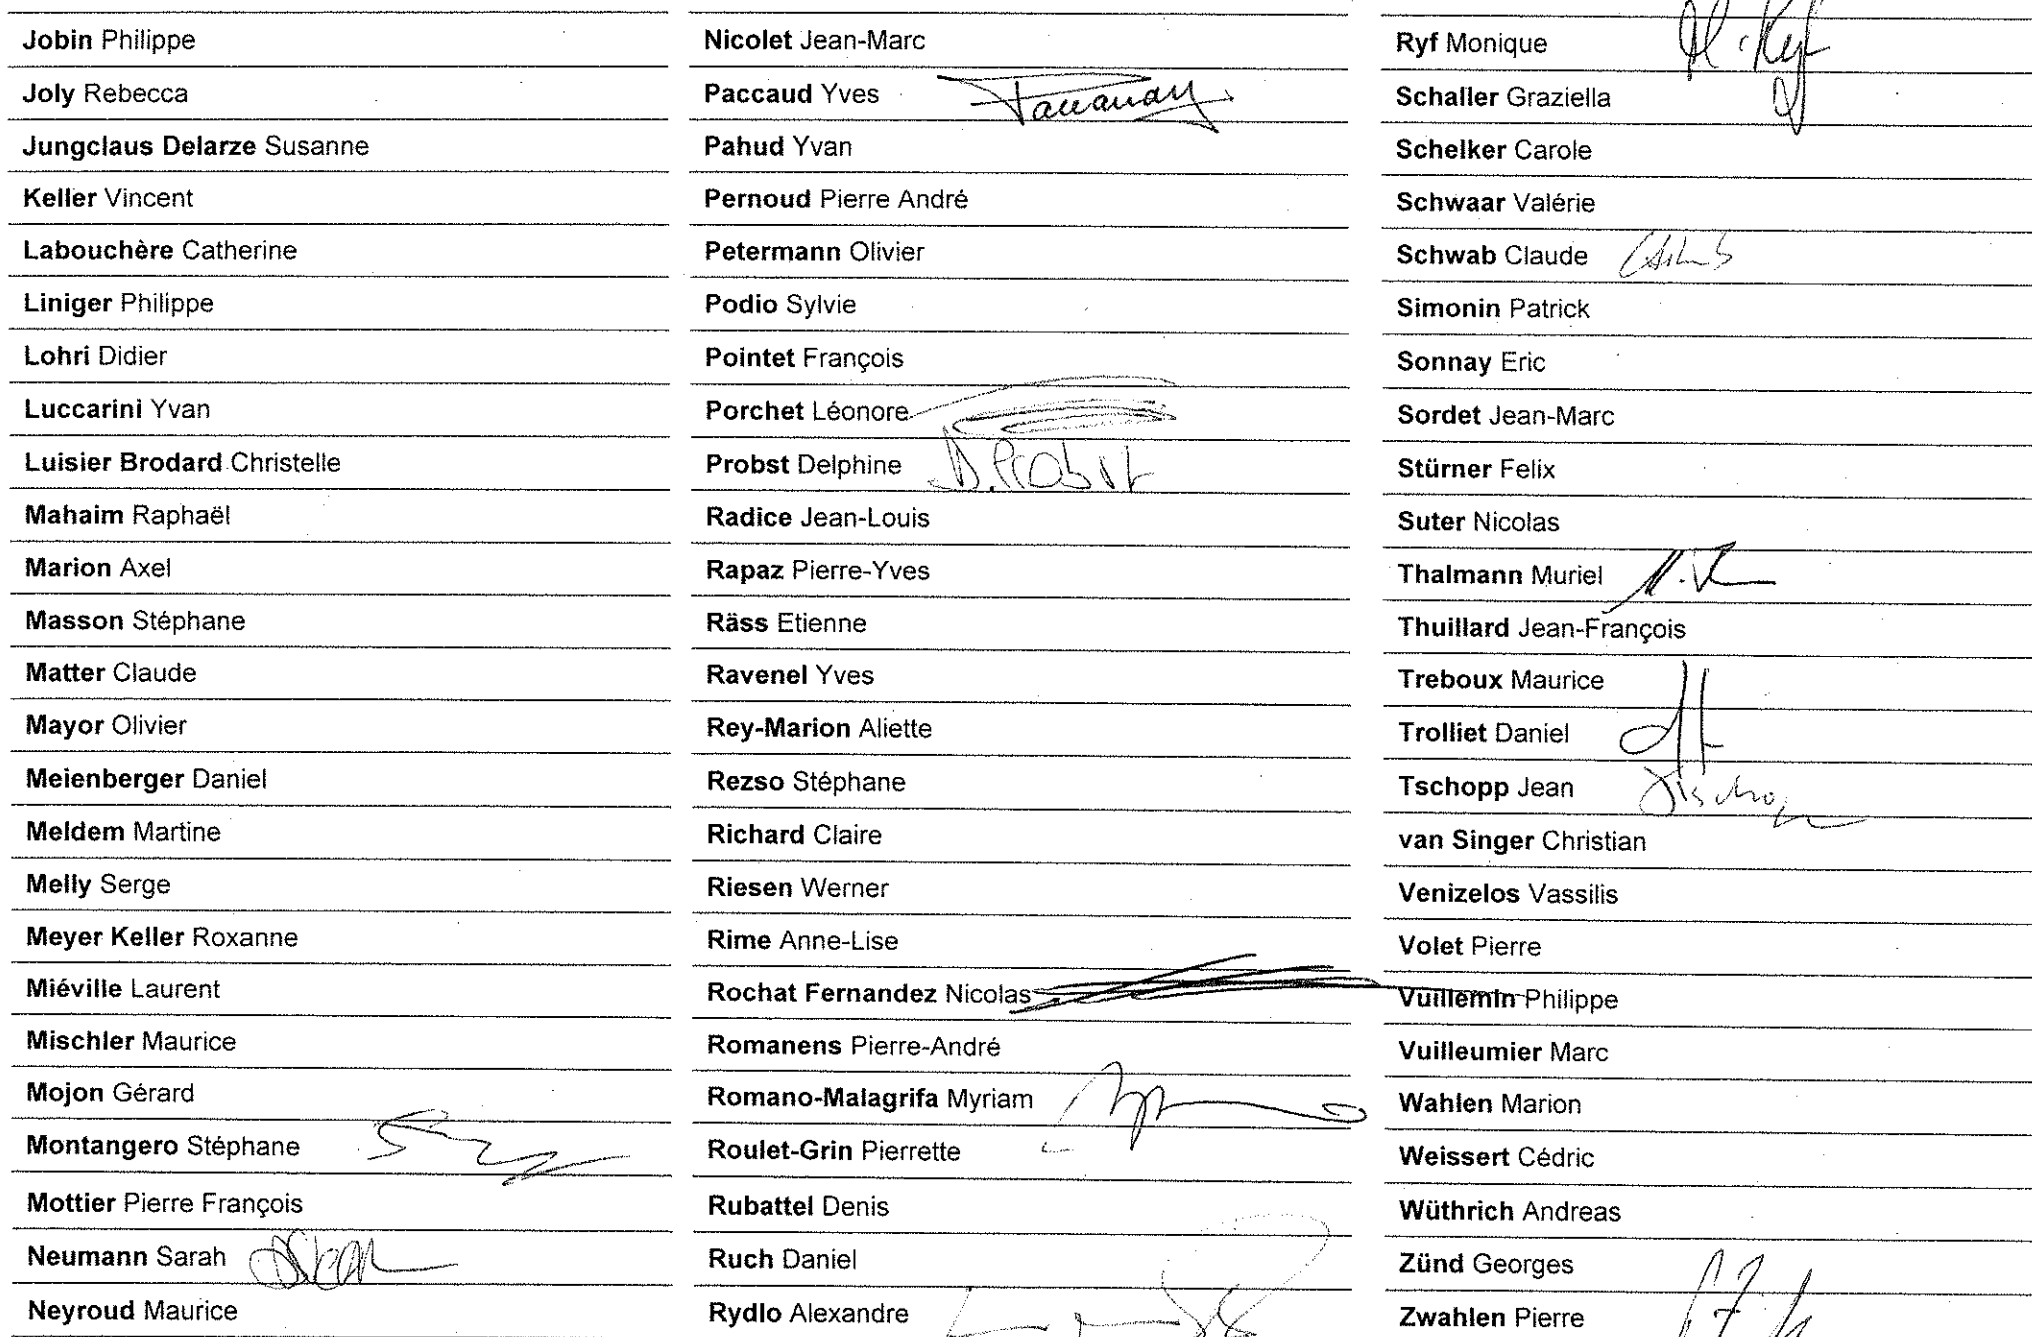 Jobin Philippe
Joly Rebecca
Jungclaus Delarze Susanne
Keller Vincent
Labouchère Catherine
Liniger Philippe
Lohri Didier
Luccarini Yvan
Luisier Brodard Christelle
Mahaim Raphaël
Marion Axel
Masson Stéphane
Matter Claude
Mayor Olivier
Meienberger Daniel
Meldem Martine
Melly Serge
Meyer Keller Roxanne
Miéville Laurent
Mischler Maurice
Mojon Gérard
Montangero Stéphane
Mottier Pierre François
Neumann Sarah
Neyroud Maurice
Nicolet Jean-Marc
Paccaud Yves
Pahud Yvan
Pernoud Pierre André
Petermann Olivier
Podio Sylvie
Pointet François
Porchet Léonore
Probst Delphine D.Probst
Radice Jean-Louis
Rapaz Pierre-Yves
Räss Etienne
Ravenel Yves
Rey-Marion Aliette
Rezso Stéphane
Richard Claire
Riesen Werner
Rime Anne-Lise
Rochat Fernandez Nicolas
Romanens Pierre-André
Romano-Malagrifa Myriam
Roulet-Grin Pierrette
Rubattel Denis
Ruch Daniel
Rydlo Alexandre
Ryf Monique
Schaller Graziella
Schelker Carole
Schwaar Valérie
Schwab Claude
Simonin Patrick
Sonnay Eric
Sordet Jean-Marc
Stürner Felix
Suter Nicolas
Thalmann Muriel
Thuillard Jean-François
Treboux Maurice
Trolliet Daniel
Tschopp Jean
van Singer Christian
Venizelos Vassilis
Volet Pierre
Vuillemin Philippe
Vuilleumier Marc
Wahlen Marion
Weissert Cédric
Wüthrich Andreas
Zünd Georges
Zwahlen Pierre